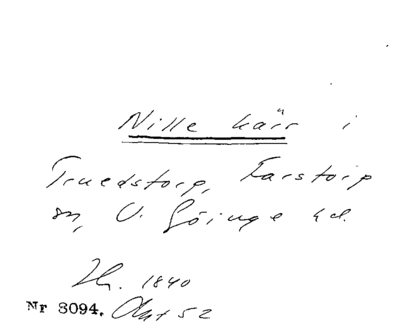 Nille kärr i
Truedstorp, Farstorp
sn, V. Göinge hd.
Zh. 1840
Nr 3094. Akt 52